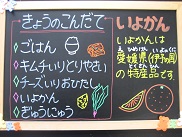 きょうのこんだて
◇ごはん
◇キムチいりとりやさい
◇チーズいりおひたし
◇いよかん
◇ぎゅうにゅう
いよかん
いよかんは、
愛媛県(伊予国)
の特産品です。